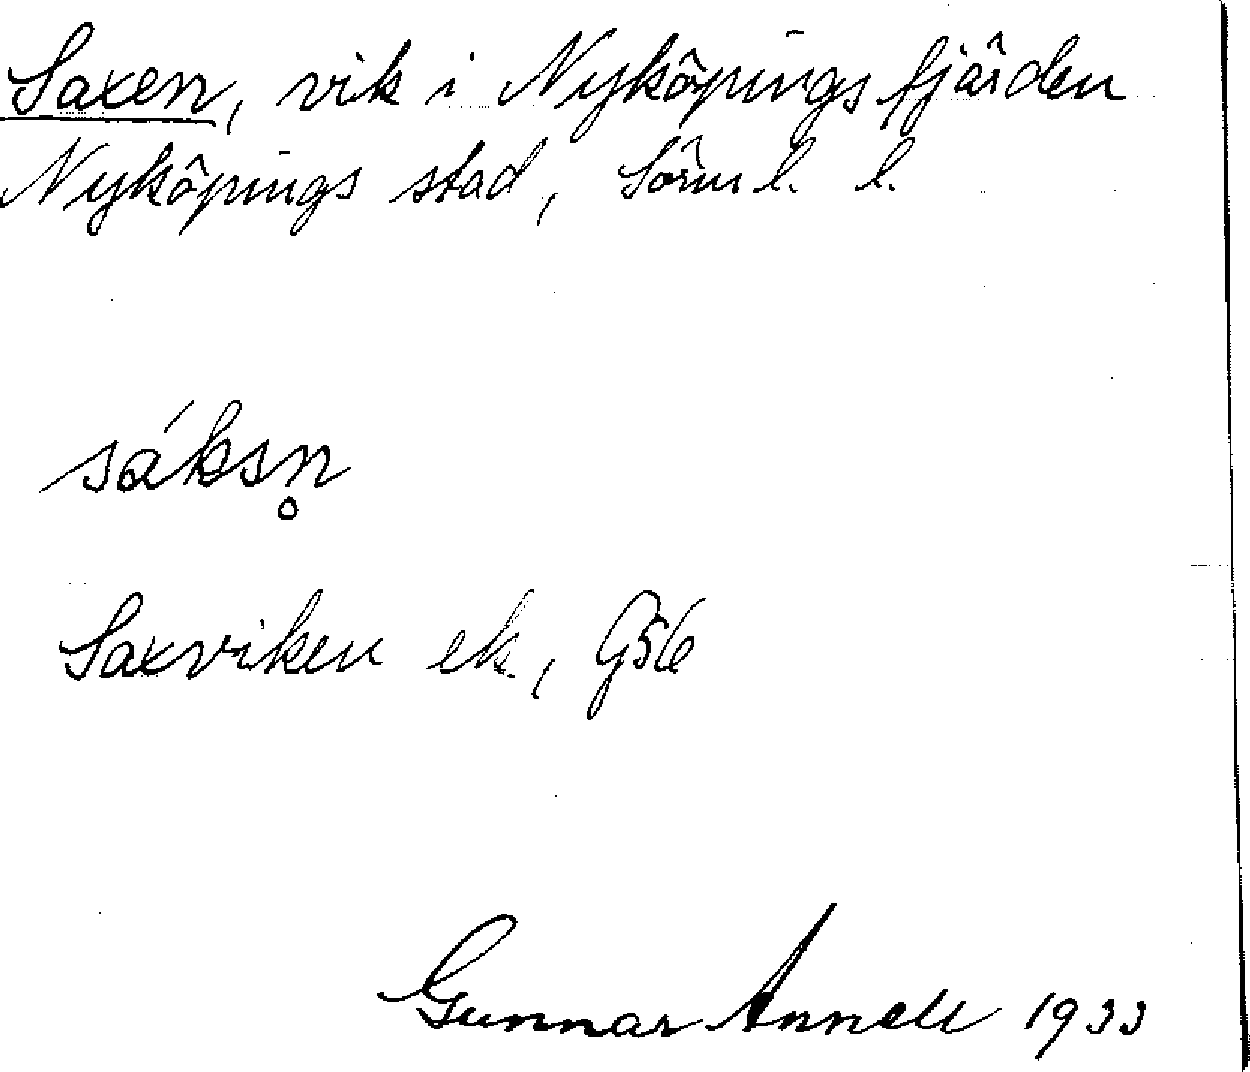 Saxen, vik i Nyköpingsfjärden
Nyköpings stad, Sörml. l.
sáksn̥
Saxviken ek, G56
Gunnar Annell 1933